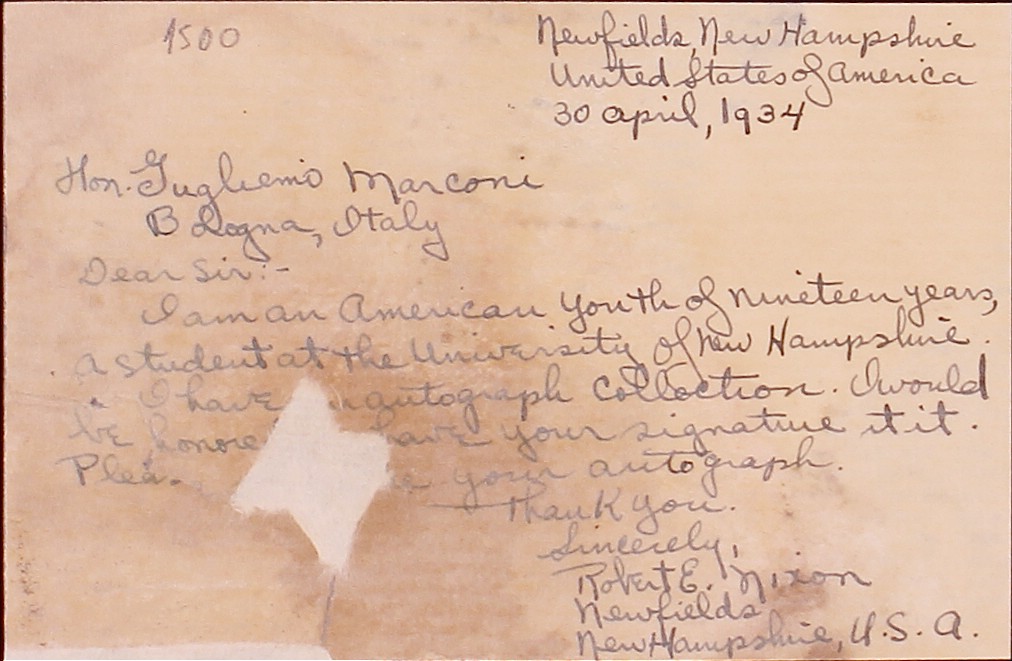 1500
Newfields, New Hampshire
United States of America
30 April, 1934
Hon. Gugliemo Marconi
Bologna, Italy
Dear Sir:-
I am an American youth of nineteen years,
a student at the University of New Hampshire.
I have autograph collection. I would
be have your signature it it.
your autograph.
Thank you.
Sincerely,
Robert E. Nixon
Newfields
New Hampshire, U.S.A.